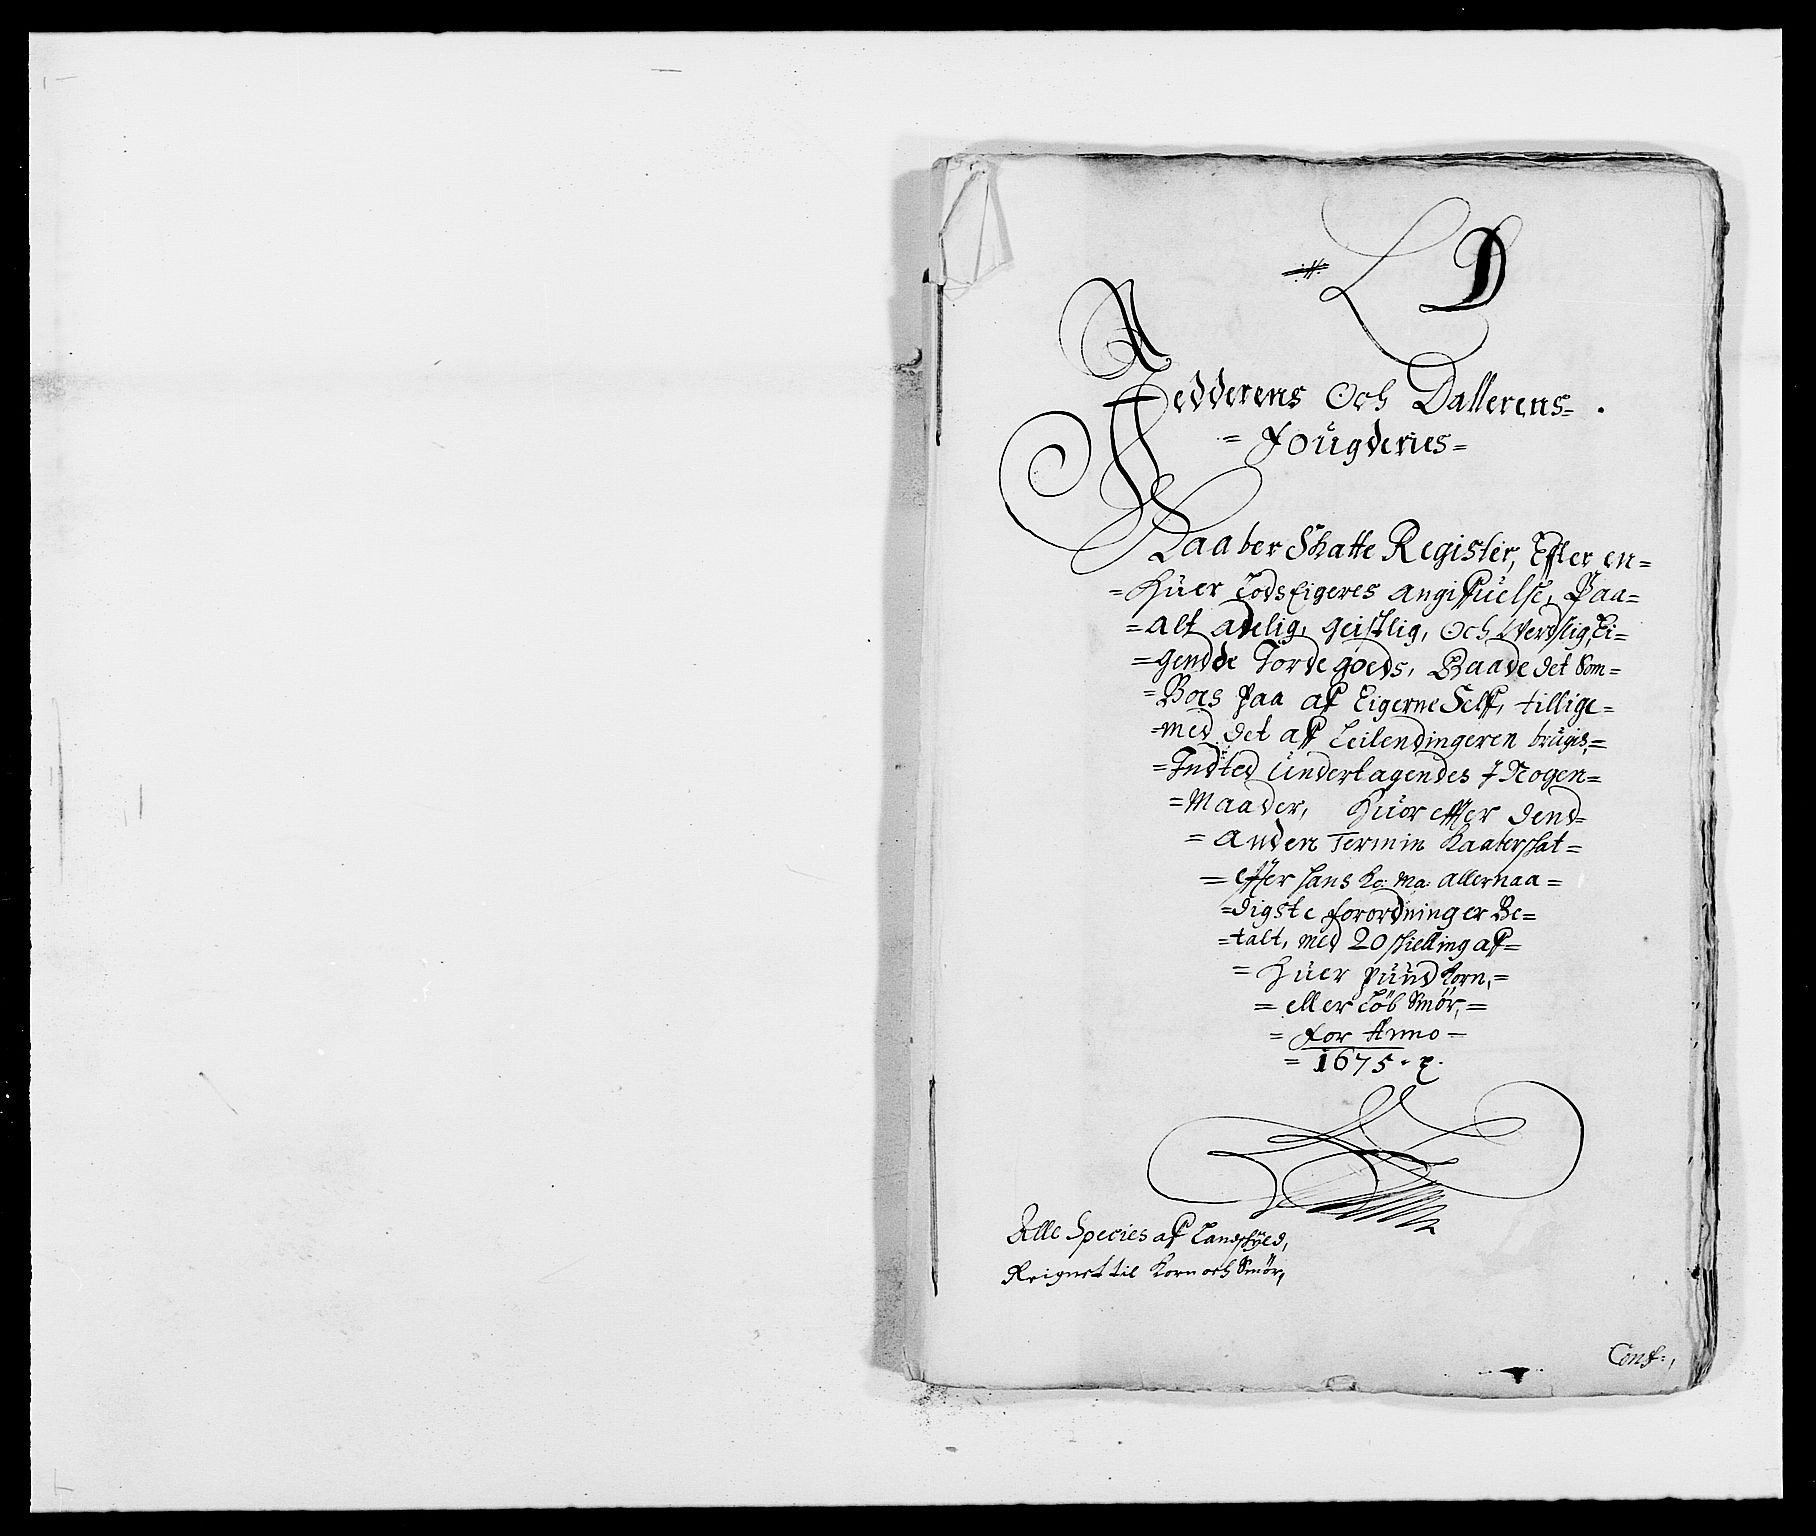 L D
Jedderens Och Dallerens= .
= Foügderies=
Kaaber Skatte Register, Effter en=
=Hüer Lodseigeres angiffüelse, Paa=
=alt adelig, geistlig, Och Werdslig, Ei=
=gendde Jordegoeds, Baade det Som=
=Boes paa aff EigerneSelff, tillige=
=med det aff Leilendingeren brüges,=
=Indted Ündertagendes J Nogen=
=Maader, Hüor effter dend=
= Anden Termin Kaaberskat=
= effter hans Ko: Ma: allernaa=
=digste forordninger Be=
=talt, med 20 skielling aff=
= Hüer pünd Korn,=
= eller Löb Smör,=
= For Anno =
= 1675 ·
Alle Species aff Landskyld,
Reignet til Korn och Smör,
Conf:,